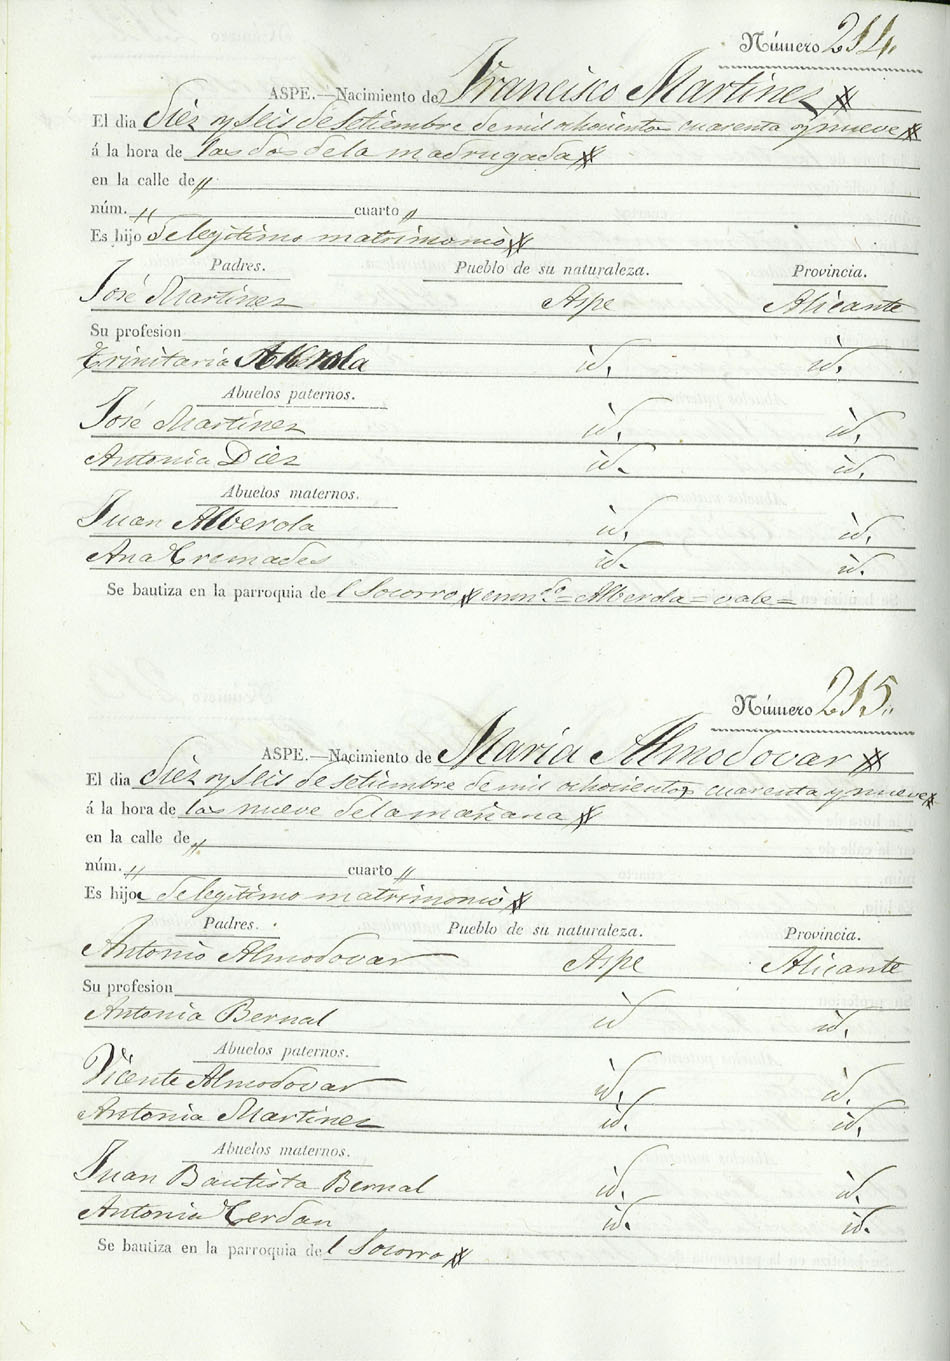 Número 214.
ASPE.—Nacimiento de Francisco Martinez
El dia diez y seis de setiembre de mil ochocientos cuarenta y nueve
á la hora de las dos de la madrugada
en la calle de "
núm. " cuarto "
Es hijo de legitimo matrimonio
Padres. Pueblo de su naturaleza. Provincia.
José Martinez Aspe Alicante
Su profesion
Trinitaria Alberola id. id.
Abuelos paternos.
José Martinez id. id.
Antonia Diez id. id.
Abuelos maternos.
Juan Alberola id. id.
Ana Cremades id. id.
Se bautiza en la parroquia del Socorro enmdo = Alberola = vale =
Número 215.
ASPE.—Nacimiento de Maria Almodovar
El dia diez y seis de setiembre de mil ochocientos cuarenta y nueve
á la hora de las nueve de la mañana
en la calle de "
núm. " cuarto "
Es hija de legitimo matrimonio
Padres. Pueblo de su naturaleza. Provincia.
Antonio Almodovar Aspe Alicante
Su profesion
Antonia Bernal id id.
Abuelos paternos.
Vicente Almodovar id. id.
Antonia Martinez id. id.
Abuelos maternos.
Juan Bautista Bernal id. id.
Antonia Cerdan id. id.
Se bautiza en la parroquia del Socorro